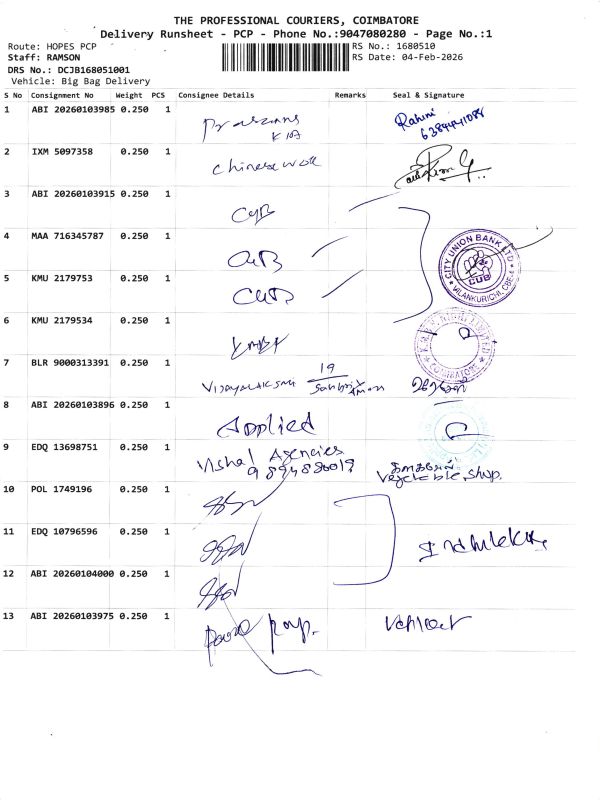 THE PROFESSIONAL COURIERS, COIMBATORE
Delivery Runsheet - PCP - Phone No.:9047080280 - Page No.:1
Route: HOPES PCP
Staff: RAMSON
DRS No.: DCJB168051001
Vehicle: Big Bag Delivery
RS No.: 1680510
RS Date: 04-Feb-2026
S No Consignment No Weight PCS Consignee Details Remarks Seal & Signature
1 ABI 20260103985 0.250 1
2 IXM 5097358 0.250 1 chinese wok
3 ABI 20260103915 0.250 1 CUB
4 MAA 716345787 0.250 1 CUB
5 KMU 2179753 0.250 1 CUB
CITY UNION BANK LTD
CUB
VILANKURICHI, CBE-4
6 KMU 2179534 0.250 1
COIMBATORE
7 BLR 9000313391 0.250 1 19
8 ABI 20260103896 0.250 1 Applied
9 EDQ 13698751 0.250 1 Vishal Agencies
Vegetable shop.
10 POL 1749196 0.250 1
11 EDQ 10796596 0.250 1
12 ABI 20260104000 0.250 1
13 ABI 20260103975 0.250 1